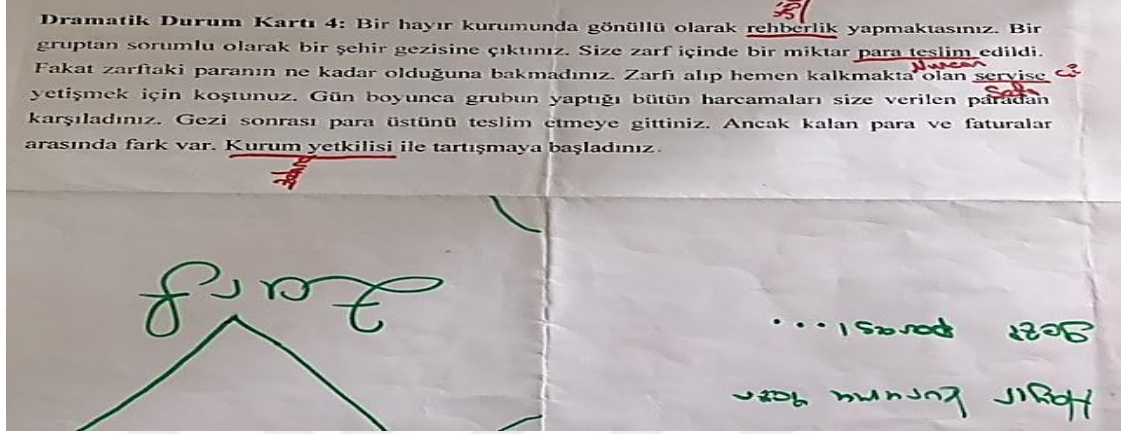 Dramatik Durum Kartı 4: Bir hayır kurumunda gönüllü olarak rehberlik yapmaktasınız. Bir
gruptan sorumlu olarak bir şehir gezisine çıktınız. Size zarf içinde bir miktar para teslim edildi.
Nurcan
Fakat zarftaki paranın ne kadar olduğuna bakmadınız. Zarfı alıp hemen kalkmakta olan servise
yetişmek için koştunuz. Gün boyunca grubun yaptığı bütün harcamaları size verilen paradan
karşıladınız. Gezi sonrası para üstünü teslim etmeye gittiniz. Ancak kalan para ve faturalar
arasında fark var. Kurum yetkilisi ile tartışmaya başladınız.
Zarf
Hayır kurumu
gezi parası...